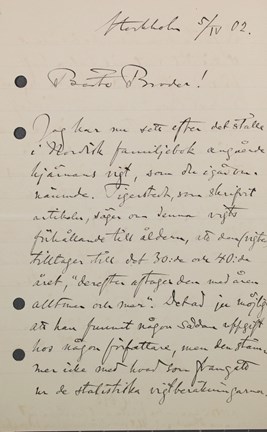 Stockholm 5/IV 02.
Bäste Broder!
Jag har nu sett efter det ställe
i Nordisk familjebok angående
hjärnans vigt, som du igår om-
nämnde. Tigerstedt, som skrifvit
artikeln, säger om denna vigts
förhållande till åldern, att den
tilltager till det 30:de och 40:de
året, "derefter aftager den med åren
allt mer och mer". Det är ju möjligt
att han funnit någon sådan uppgift
hos någon författare, men den stäm-
mer icke med hvad som framgått
ur de statistiska vigtberäkningarna.